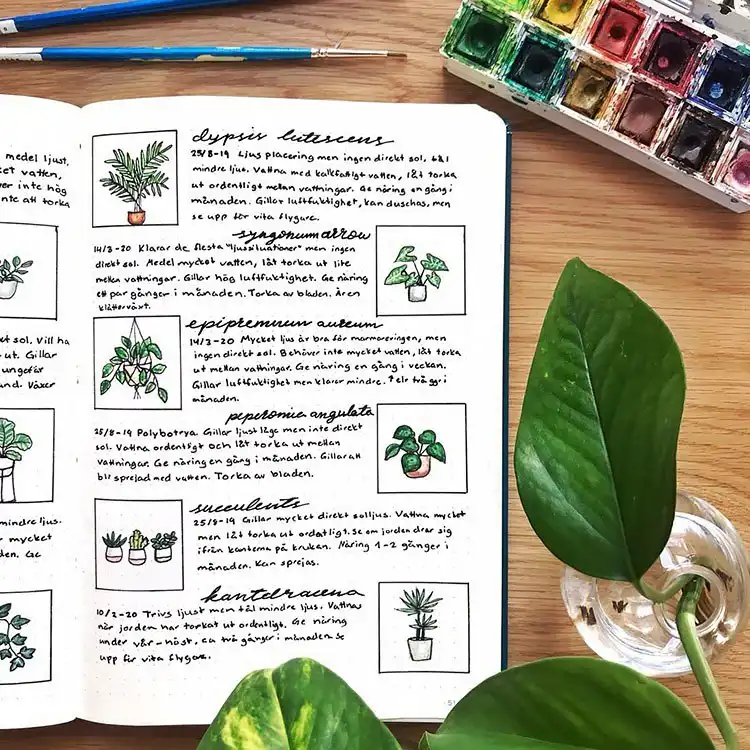 medel ljust,
vatten,
inte hög
inte att torka
sol. Vill ha
ut. Gillar
ungefär
und. Växer
mindre ljus.
mycket
den. Ge
dypsis lutescens
25/8-19 Ljus placering men ingen direkt sol, tål
mindre ljus. Vattna med kalkfattigt vatten, låt torka
ut ordentligt mellan vattningar. Ge näring en gång i
månaden. Gillar luftfuktighet, kan duschas, men
se upp för vita flygare.
syngonium arrow
14/3-20 Klarar de flesta "ljussituationer" men ingen
direkt sol. Medel mycket vatten, låt torka ut lite
mellan vattningar. Gillar hög luftfuktighet. Ge näring
ett par gånger i månaden. Torka av bladen. Är en
klätterväxt.
epipremnum aureum
14/3-20 Mycket ljus är bra för marmoreringen, men
ingen direkt sol. Behöver inte mycket vatten, låt torka
ut mellan vattningar. Ge näring en gång i veckan.
Gillar luftfuktighet men klarar mindre.
månaden.
peperomia angulata
25/8-19 Polybotrya. Gillar ljust läge men inte direkt
sol. Vattna ordentligt och låt torka ut mellan
vattningar. Ge näring en gång i månaden. Gillar att
bli sprejad med vatten. Torka av bladen.
succulents
25/8-19 Gillar mycket direkt solljus. Vattna mycket
men låt torka ut ordentligt. Se om jorden drar sig
ifrån kanterna på krukan. Näring 1-2 gånger i
månaden. Kan sprejas.
kantdracena
10/2-20 Trivs ljust men tål mindre ljus. Vattnas
när jorden har torkat ut ordentligt. Ge näring
under vår-höst, ca två gånger i månaden. Se
upp för vita flygare.